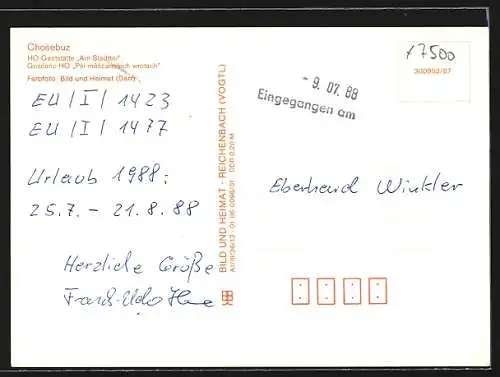 Chośebuz
HO-Gaststätte „Am Stadttor"
Gosćeńc HO „Pśi měšćańskich wrotach"
Farbfoto: Bild und Heimat
EU/I/ 1423
EU/I/ 1477
Urlaub 1988:
25.7. – 21.8.88
Herzliche Grüße
Frank-Udo
BILD UND HEIMAT · REICHENBACH (VOGTL)
DDR 0,20 M
- 9. 07. 88
Eingegangen am
17500
300953/87
Eberhard Winkler